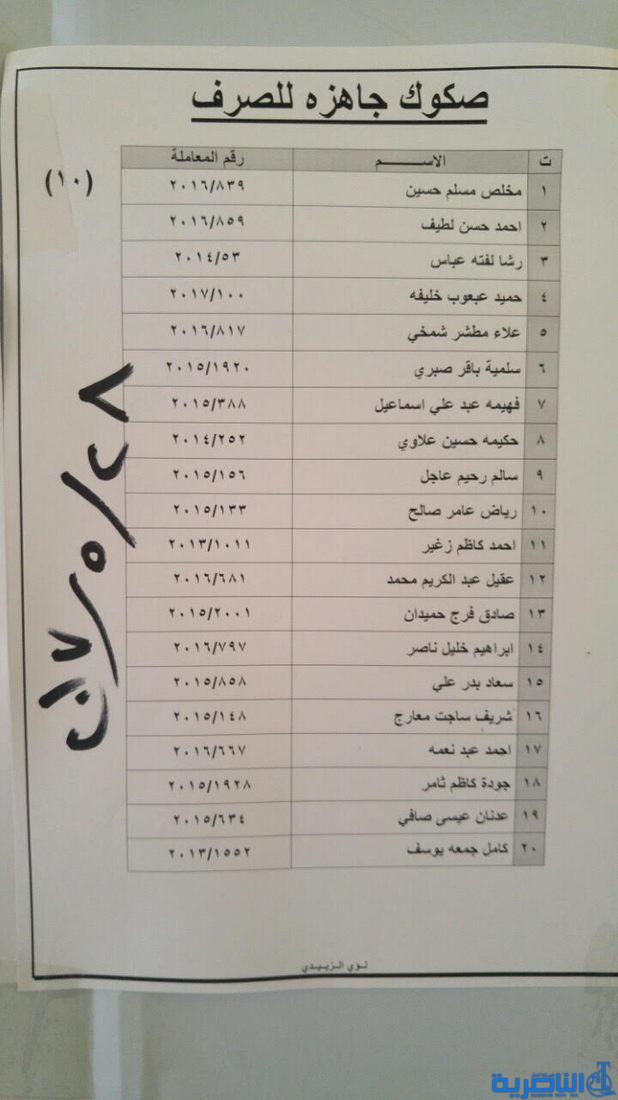 صكوك جاهزه للصرف
(١٠)
ت الاســـــم رقم المعاملة
١ مخلص مسلم حسين ٢٠١٦/٨٣٩
٢ احمد حسن لطيف ٢٠١٦/٨٥٩
٣ رشا لفته عباس ٢٠١٤/٥٣
٤ حميد عبعوب خليفه ٢٠١٧/١٠٠
٥ علاء مطشر شمخي ٢٠١٦/٨١٧
٦ سلمية باقر صبري ٢٠١٥/١٩٢٠
٧ فهيمه عبد علي اسماعيل ٢٠١٥/٣٨٨
٨ حكيمه حسين علاوي ٢٠١٤/٢٥٢
٩ سالم رحيم عاجل ٢٠١٥/١٥٦
١٠ رياض عامر صالح ٢٠١٥/١٣٣
١١ احمد كاظم زغير ٢٠١٣/١٠١١
١٢ عقيل عبد الكريم محمد ٢٠١٦/٦٨١
١٣ صادق فرج حميدان ٢٠١٥/٢٠٠١
١٤ ابراهيم خليل ناصر ٢٠١٦/٧٩٧
١٥ سعاد بدر علي ٢٠١٥/٨٥٨
١٦ شريف ساجت معارج ٢٠١٥/١٤٨
١٧ احمد عبد نعمه ٢٠١٦/٦٦٧
١٨ جودة كاظم ثامر ٢٠١٥/١٩٢٨
١٩ عدنان عيسى صافي ٢٠١٥/٦٣٤
٢٠ كامل جمعه يوسف ٢٠١٣/١٥٥٢
لؤي الزبيدي
الناصرية